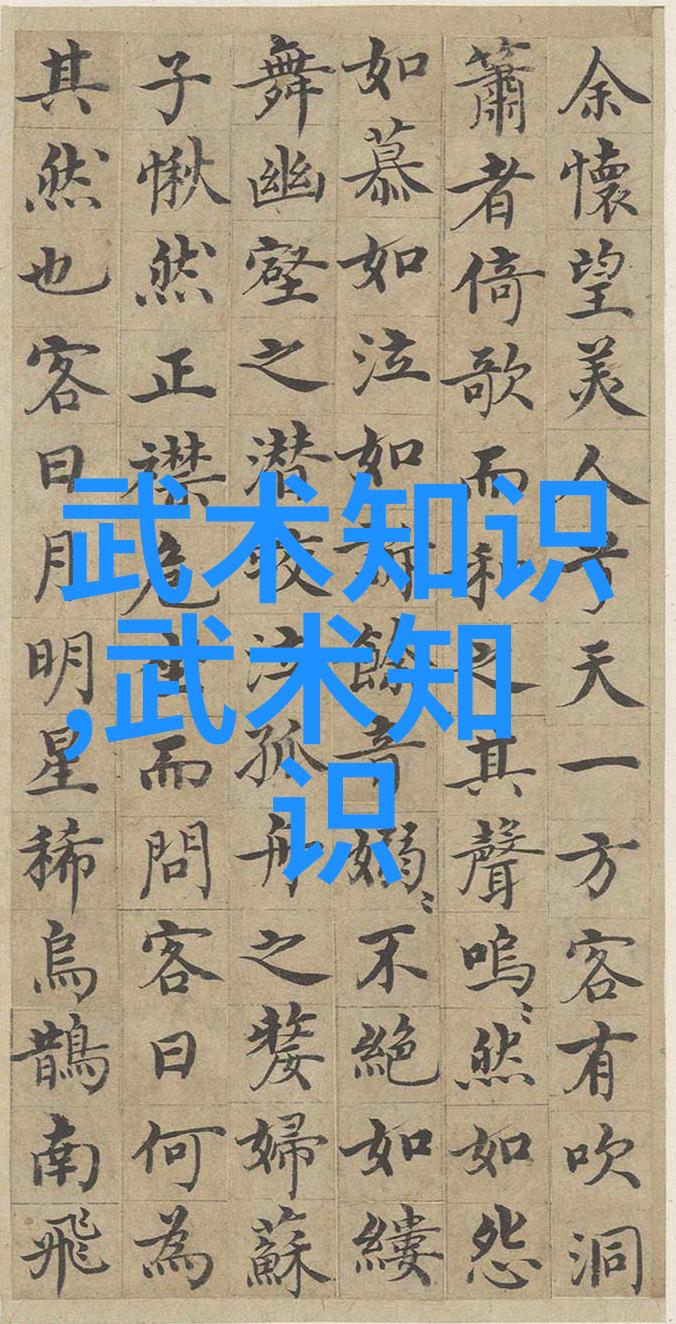 余懷望美人于天一方客有吹洞
簫者倚歌而和之其聲嗚〻然如怨
如慕如泣如訴餘音嫋〻不絕如縷
舞幽壑之潜蛟泣孤舟之嫠婦蘇
子愀然正襟危坐而問客曰何為
其然也客曰月明星稀烏鵲南飛
武术知识
,武术知
识